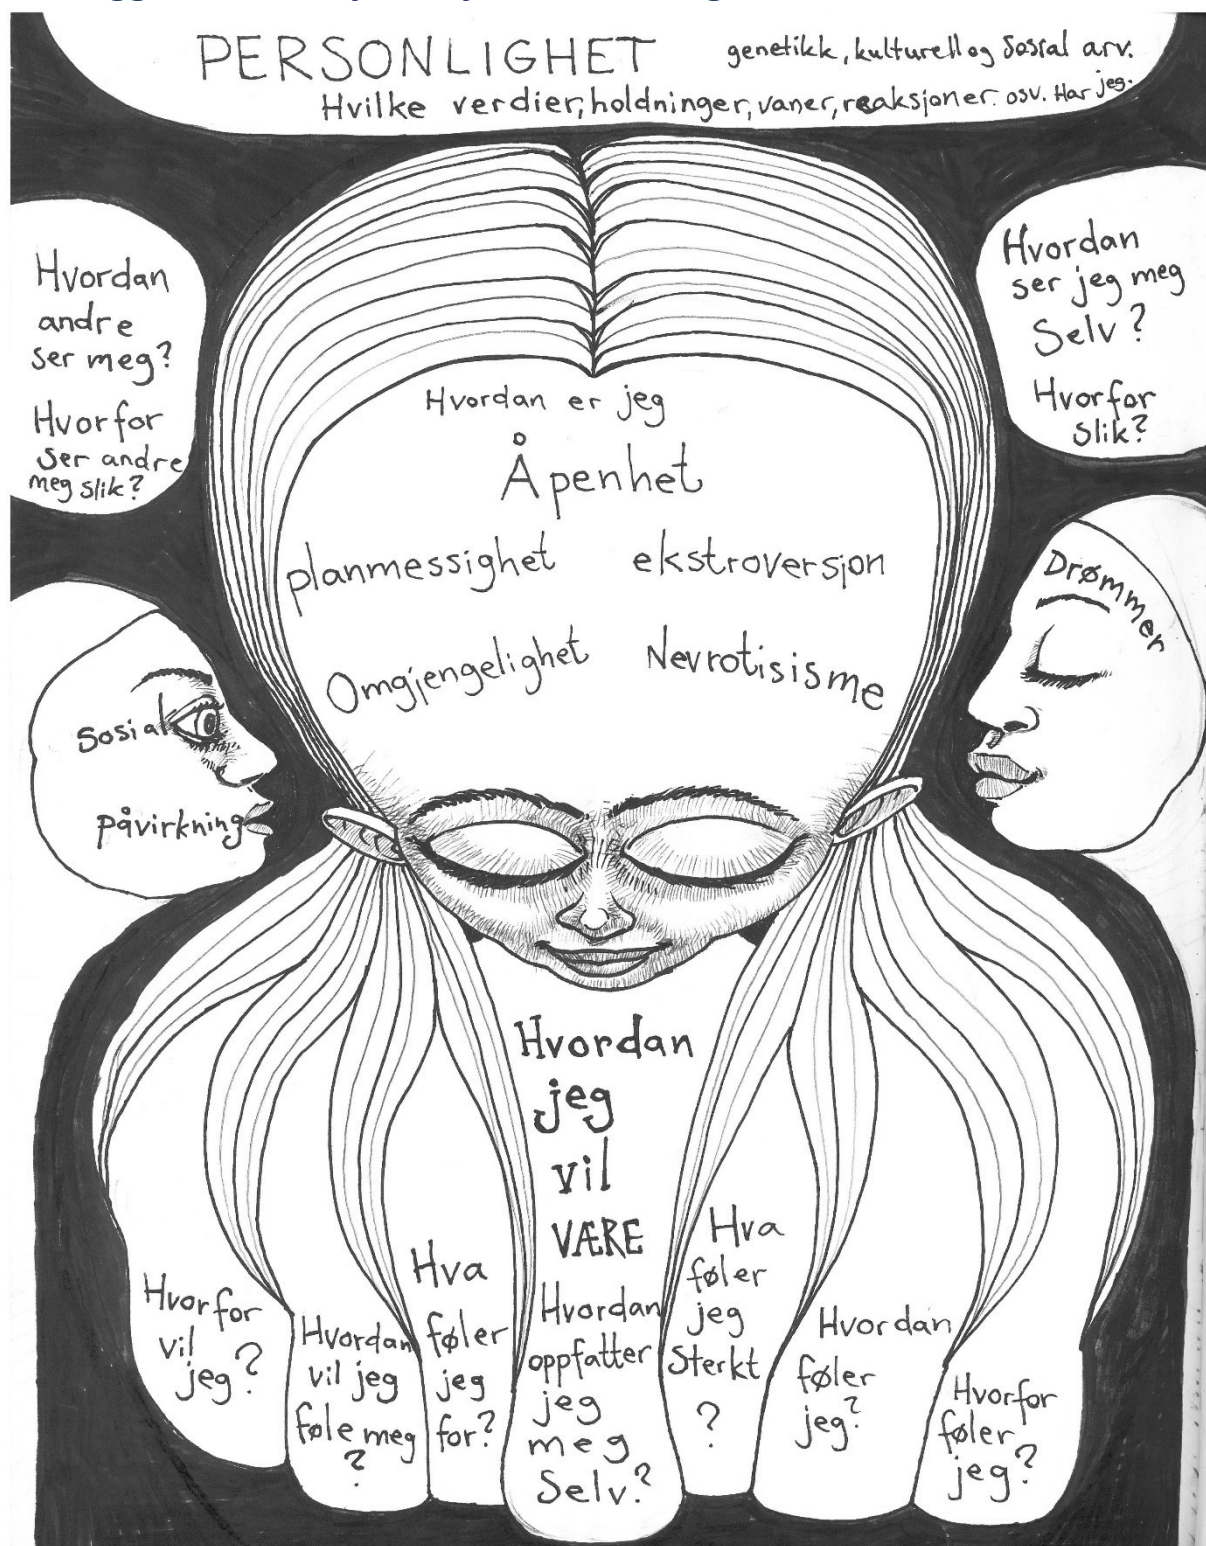 PERSONLIGHET
genetikk, kulturell og Sosial arv.
Hvilke verdier, holdninger, vaner, reaksjoner. osv. Har jeg.
Hvordan
andre
ser meg?
Hvorfor
ser andre
meg slik?
Hvordan
ser jeg meg
Selv?
Hvorfor
slik?
Hvordan er jeg
Åpenhet
planmessighet ekstroversjon
Omgjengelighet Nevrotisisme
Sosial
påvirkning
Drømmer
Hvordan
jeg
vil
VÆRE
Hvorfor
vil
jeg?
Hvordan
vil jeg
føle meg
?
Hva
føler
jeg
for?
Hvordan
oppfatter
jeg
meg
Selv?
Hva
føler
jeg
Sterkt
?
Hvordan
føler
jeg?
Hvorfor
føler
jeg?